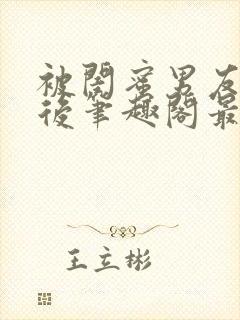 被閨蜜男友
後筆趣閣最
王立彬